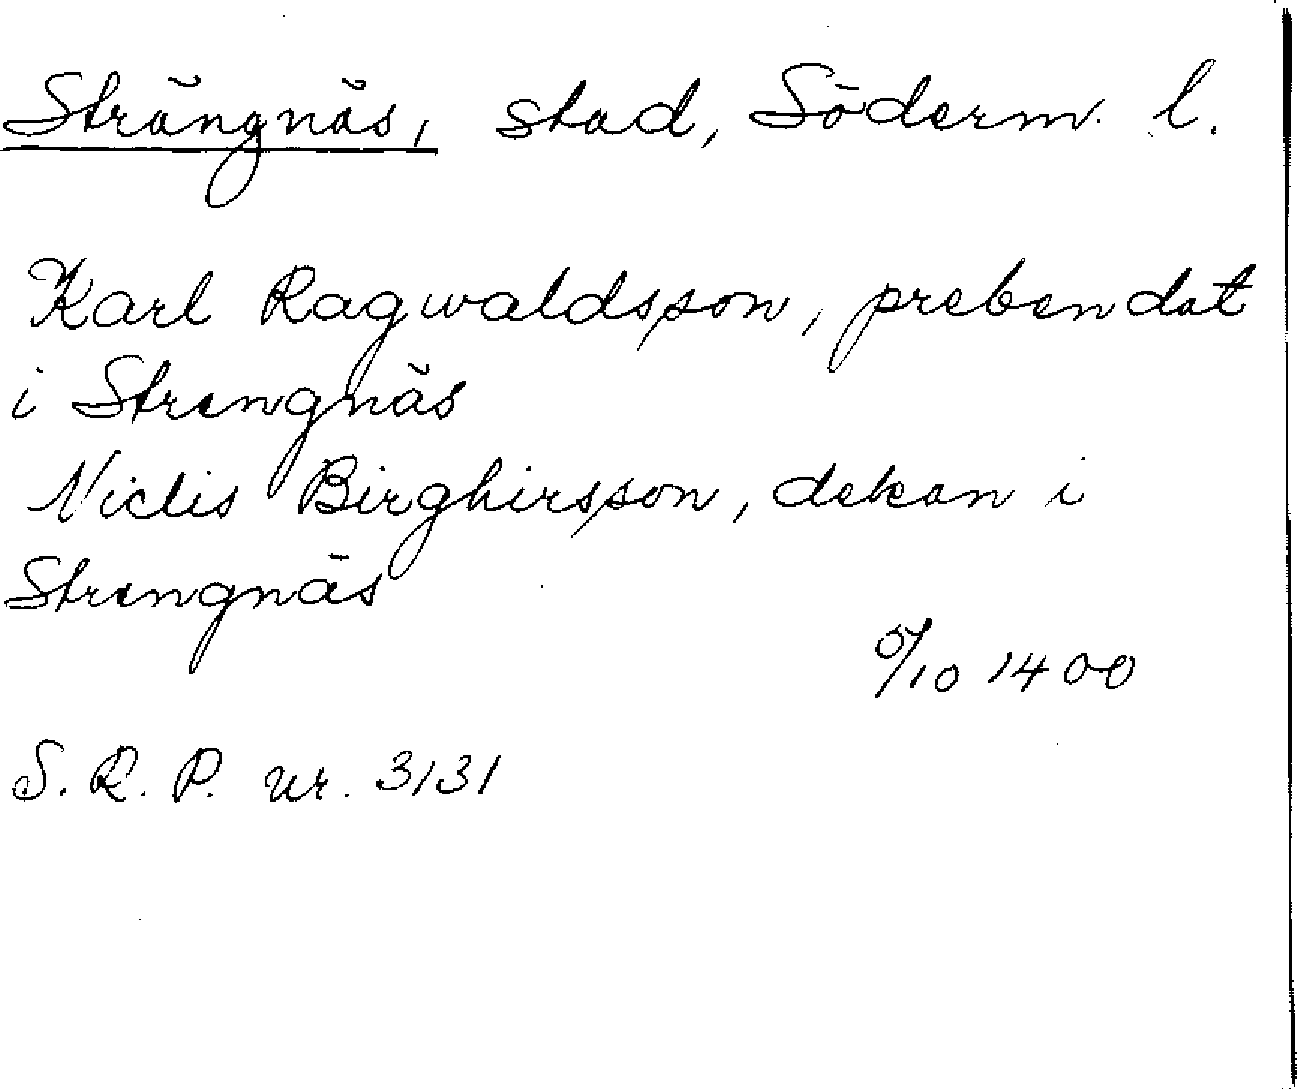 Strängnäs, stad, Söderm. l.
Karl Ragwaldsson, prebendat
i Strengnäs
Niclis Birghirsson, dekan i
Strengnäs
5/10 1400
S. R. P. nr. 3131